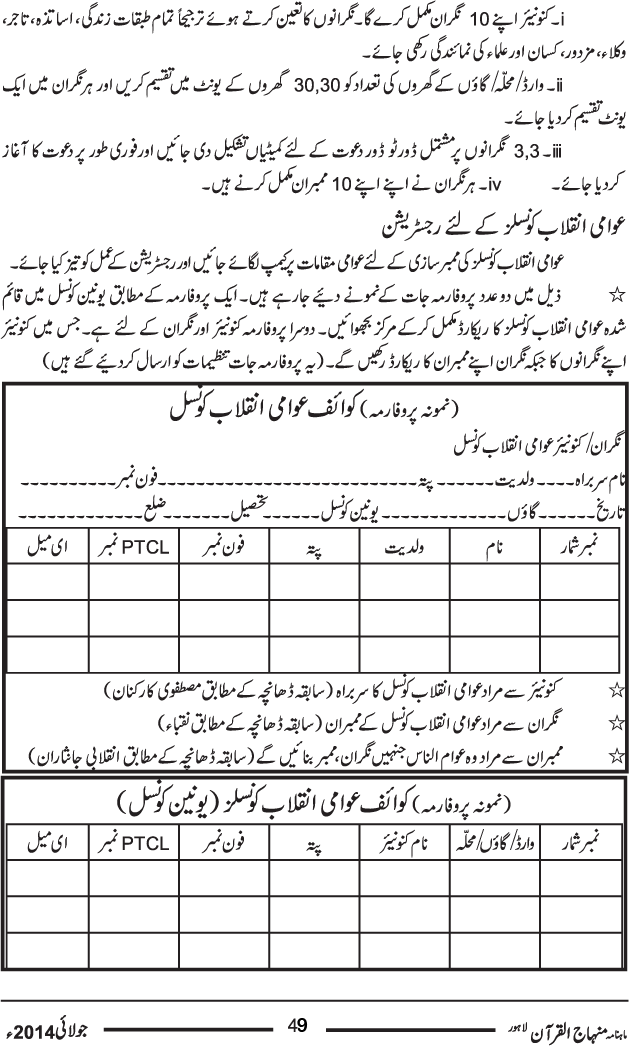 i۔ کنوینئر اپنے 10 نگران مکمل کرے گا۔ نگرانوں کا تعین کرتے ہوئے ترجیحاً تمام طبقات زندگی، اساتذہ، تاجر،
وکلاء، مزدور، کسان اور علماء کی نمائندگی رکھی جائے۔
ii۔ وارڈ/محلّہ/گاؤں کے گھروں کی تعداد کو 30,30 گھروں کے یونٹ میں تقسیم کریں اور ہر نگران میں ایک
یونٹ تقسیم کر دیا جائے۔
iii۔ 3,3 نگرانوں پر مشتمل ڈور ٹو ڈور دعوت کے لئے کمیٹیاں تشکیل دی جائیں اور فوری طور پر دعوت کا آغاز
کر دیا جائے۔ iv۔ ہر نگران نے اپنے اپنے 10 ممبران مکمل کرنے ہیں۔
عوامی انقلاب کونسلز کے لئے رجسٹریشن
عوامی انقلاب کونسلز کی ممبر سازی کے لئے عوامی مقامات پر کیمپ لگائے جائیں اور رجسٹریشن کے عمل کو تیز کیا جائے۔
☆ ذیل میں دو عدد پروفارمہ جات کے نمونے دیئے جا رہے ہیں۔ ایک پروفارمہ کے مطابق یونین کونسل میں قائم
شدہ عوامی انقلاب کونسلز کا ریکارڈ مکمل کر کے مرکز بھجوائیں۔ دوسرا پروفارمہ کنوینئر اور نگران کے لئے ہے۔ جس میں کنوینئر
اپنے نگرانوں کا جبکہ نگران اپنے ممبران کا ریکارڈ رکھیں گے۔ (یہ پروفارمہ جات تنظیمات کو ارسال کر دیئے گئے ہیں)
(نمونہ پروفارمہ) کوائف عوامی انقلاب کونسل
نگران/کنوینئر عوامی انقلاب کونسل
نام سربراہ۔۔۔۔ ولدیت۔۔۔۔۔۔ پتہ۔۔۔۔۔۔۔۔۔۔۔۔۔۔۔۔۔۔۔۔۔۔۔۔۔۔۔ فون نمبر۔۔۔۔۔۔۔۔۔۔
تاریخ۔۔۔۔۔۔ گاؤں۔۔۔۔۔۔۔۔۔۔۔۔۔ یونین کونسل۔۔۔۔۔۔ تحصیل۔۔۔۔۔۔۔ ضلع۔۔۔۔۔۔۔۔۔۔۔۔۔
نمبر شمار نام ولدیت پتہ فون نمبر PTCL نمبر ای میل
☆ کنوینئر سے مراد عوامی انقلاب کونسل کا سربراہ (سابقہ ڈھانچہ کے مطابق مصطفوی کارکنان)
☆ نگران سے مراد عوامی انقلاب کونسل کے ممبران (سابقہ ڈھانچہ کے مطابق نقباء)
☆ ممبران سے مراد وہ عوام الناس جنہیں نگران، ممبر بنائیں گے (سابقہ ڈھانچہ کے مطابق انقلابی جانثاران)
(نمونہ پروفارمہ) کوائف عوامی انقلاب کونسلز (یونین کونسل)
نمبر شمار وارڈ/گاؤں/محلّہ نام کنوینئر پتہ فون نمبر PTCL نمبر ای میل
ماہنامہ منہاج القرآن لاہور 49 جولائی 2014ء